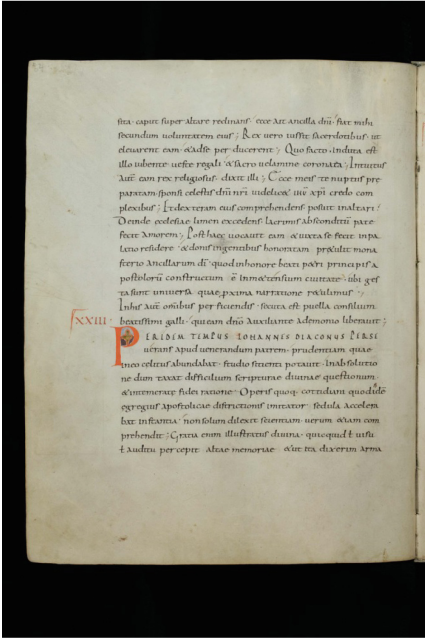 sita · caput super altare reclinans · ecce ait ancilla dñi · fiat mihi
secundum voluntatem eius ; Rex vero iussit sacerdotibus · ut
elevarent eam · & ad se per ducerent ; Quo facto · induta est
illo iubente veste regali · & sacro velamine coronata ; Intuitus
aut̄ eam rex religiosus · dixit illi ; Ecce meis te nuptus pre
paratam · sponsi celestis dñi nr̄i videlic& ihū xp̄i credo com
plexibus ; Et dexteram eius comprehendens posuit in altari ·
Deinde ecclesiae limen excedens · lacrimis absconditū pate
fecit amorem ; Post haec vocavit eam · & iuxta se fecit in pa
latio residere · & donis ingentibus honoratam praetulit mona
sterio ancillarum dī · quod in honore beati p&ri principis a
postolorū constructum ē in m&tensium civitate · ubi ges
ta sunt universa quae proxima narratione r&ulimus ;
In his aut̄ omībus per ficiendis · secuta est puella consilium
beatissimi galli · qui eam dño auxiliante a demonio liberavit ;
XXIII · PER IDEM TEMPUS IOHANNES DIACONUS PERSE
verans apud venerandum patrem · prudentiam quae
in eo celitus abundabat · studio sitienti potavit · In absolutio
ne dum taxat difficilium scripturae divinae questionum ·
& intemerate fidei ratione · Operis quoq; cottidiani quod idē
egregius apostolicae districtionis imitator · sedula accelera
bat instantia · non solum dilexit scientiam · verum & iam com
prehendit ; Gratia enim illustratus divina · quicquid ł visu
ł auditu percepit altae memoriae · & ut ita dixerim arma